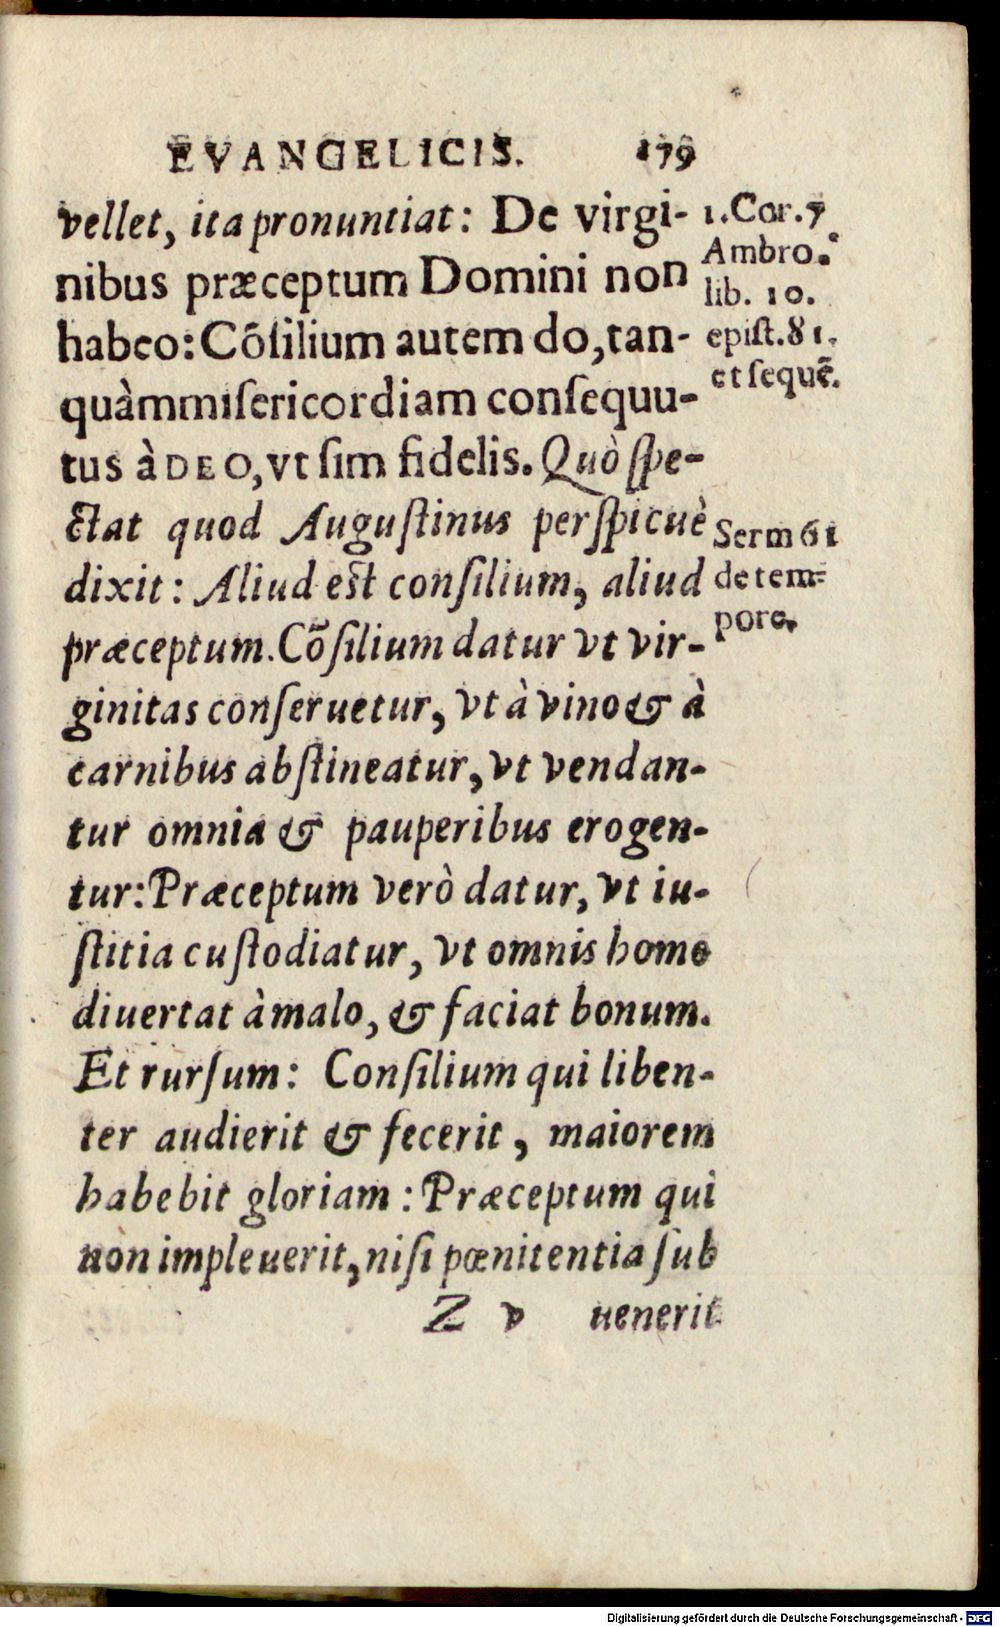 EVANGELICIS. 179
vellet, ita pronuntiat: De virgi-
nibus præceptum Domini non
habeo: Cõſilium autem do, tan-
quàm miſericordiam conſequu-
tus à DEO, vt ſim fidelis. Quò ſpe-
ctat quod Auguſtinus perſpicuè
dixit: Aliud eſt conſilium, aliud
præceptum. Cõſilium datur vt vir-
ginitas conſeruetur, vt à vino & à
carnibus abſtineatur, vt vendan-
tur omnia & pauperibus erogen-
tur: Præceptum verò datur, vt iu-
ſtitia cuſtodiatur, vt omnis homo
diuertat à malo, & faciat bonum.
Et rurſum: Conſilium qui liben-
ter audierit & fecerit, maiorem
habebit gloriam: Præceptum qui
non impleuerit, niſi pœnitentia ſub
Z v uenerit
1. Cor. 7
Ambro.
lib. 10.
epiſt. 81.
et ſequẽ.
Serm 61
de tem-
pore.
Digitalisierung gefördert durch die Deutsche Forschungsgemeinschaft - DFG